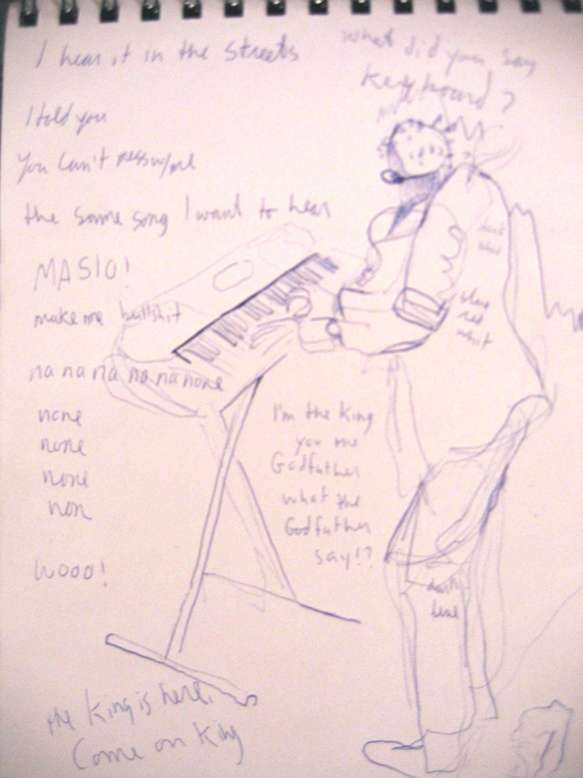 I hear it in the streets
what did you say
Keyboard?
I told you
You can't
the same song I want to hear
MASIO!
make me bullshit
na na na na na none
none
none
none
non
I'm the King
you me
Godfather
what the
Godfather
say!?
Wooo!
blue
red
whit
dark
blue
the King is here.
Come on King